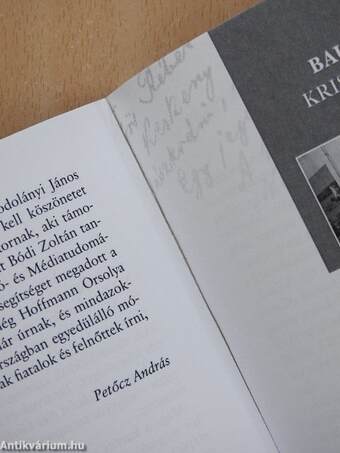 odolányi János
kell köszönetet
tornak, aki támo-
t Bódi Zoltán tan-
ó- és Médiatudomá-
segítséget megadott a
ég Hoffmann Orsolya
ár úrnak, és mindazok-
országban egyedülálló mó-
ak fiatalok és felnőttek írni,
Petőcz András
BAL
KRIS
Antikvárium.hu